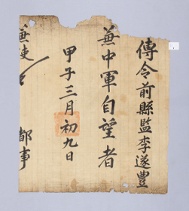 傳令前縣監李遂豊
兼中軍自望者
甲子三月初九日
兼使
都事